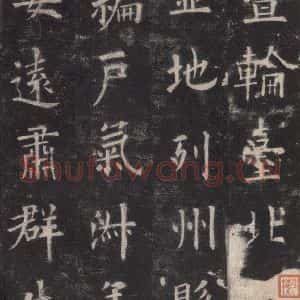 暨輪臺北
並地列州縣
編戶氣淑年
安遠肅群
Shufawang.cn